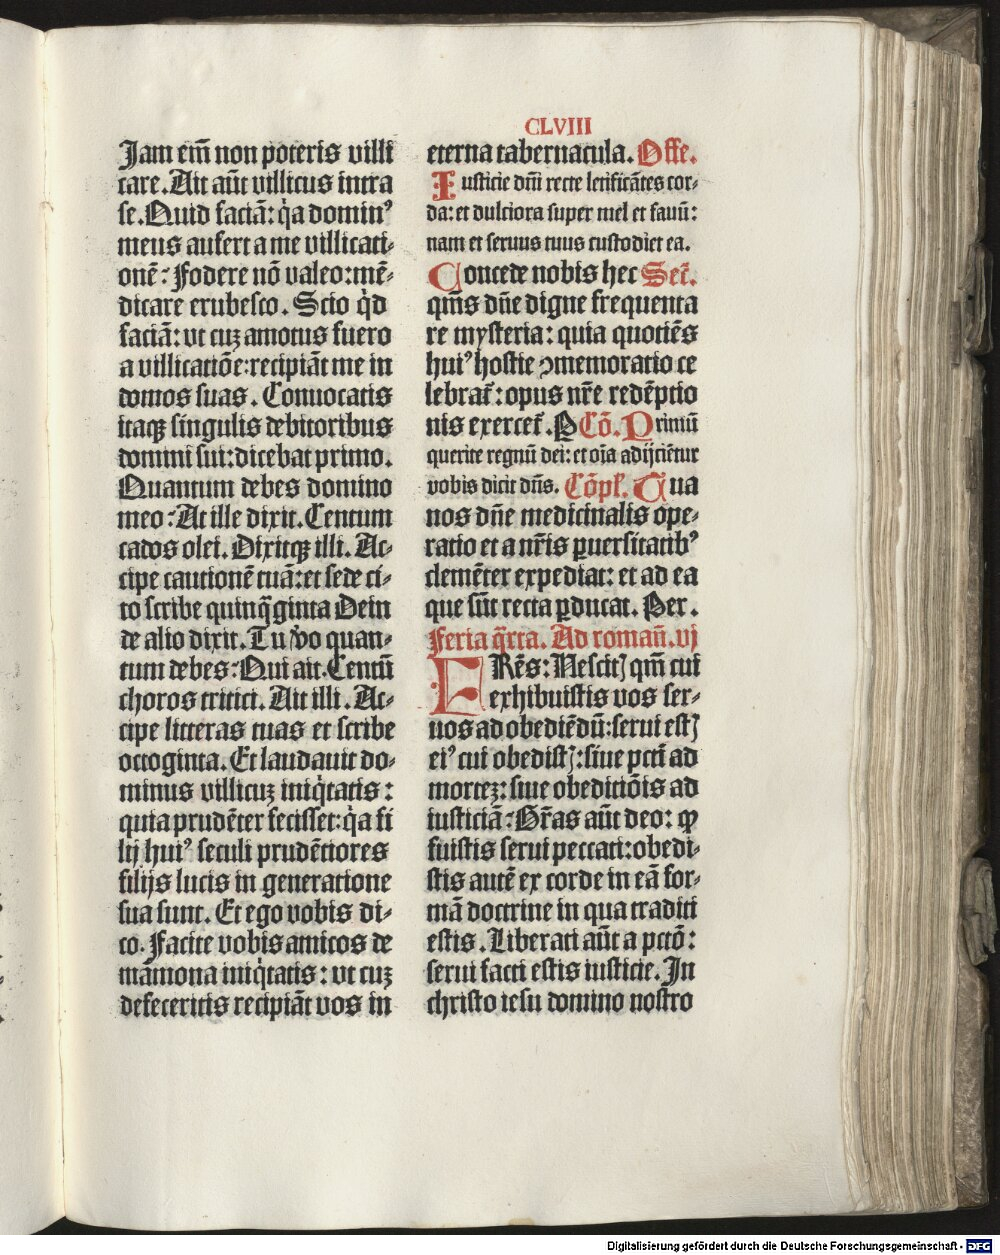 CLVIII
Jam em̄ non poteris villi
care. Ait aūt villicus intra
se. Quid faciā: q̇a dominꝰ
meus aufert a me villicati⸗
onē: Fodere nō valeo: mē⸗
dicare erubesco. Scio q̇d
faciā: vt cuʒ amotus fuero
a villicatiōe: recipiāt me in
domos suas. Conuocatis
itaqꝫ singulis debitoribus
domini sui: dicebat primo.
Quantum debes domino
meo: At ille dixit. Centum
cados olei. Dixitqꝫ illi. Ac⸗
cipe cautionē tuā: et sede ci⸗
to scribe quinq̄ginta Dein
de alio dixit. Tu v̾o quan⸗
tum debes: Qui ait. Centū
choros tritici. Ait illi. Ac⸗
cipe litteras tuas et scribe
octoginta. Et laudauit do⸗
minus villicuʒ iniq̇tatis:
quia prudēter fecisset: q̇a fi
lij huiꝰ seculi prudētiores
filijs lucis in generatione
sua sunt. Et ego vobis di⸗
co. Facite vobis amicos de
māmona iniq̇tatis: vt cuʒ
defeceritis recipiāt vos in
eterna tabernacula. Offe.
Iusticie dn̄i recte letificātes cor⸗
da: et dulciora super mel et fauū:
nam et seruus tuus custodiet ea.
Concede nobis hec Secr̄.
qm̄s dn̄e digne frequenta
re mysteria: quia quotiēs
huiꝰ hostie ꝯmemoratio ce
lebrat̄: opus nr̄e redēptio
nis exercet̄. P Cō. Primū
querite regnū dei: et oīa adijciētur
vobis dicit dn̄s. Cōpl̄. Tua
nos dn̄e medicinalis ope⸗
ratio et a nr̄is ꝑuersitatibꝰ
clemēter expediat: et ad ea
que sūt recta ꝑducat. Per.
Feria q̄rta. Ad romañ. vj
FRēs: Nescitꝭ qm̄ cui
exhibuistis vos ser⸗
uos ad obediēdū: serui estꝭ
eiꝰ cui obedistꝭ: siue pctī ad
morteʒ: siue obeditiōis ad
iusticiā: Gr̄as aūt deo: ꝙ
fuistis serui peccati: obedi⸗
stis autē ex corde in eā for⸗
mā doctrine in qua traditi
estis. Liberati aūt a pctō:
serui facti estis iusticie. In
christo iesu domino nostro
Digitalisierung gefördert durch die Deutsche Forschungsgemeinschaft - DFG